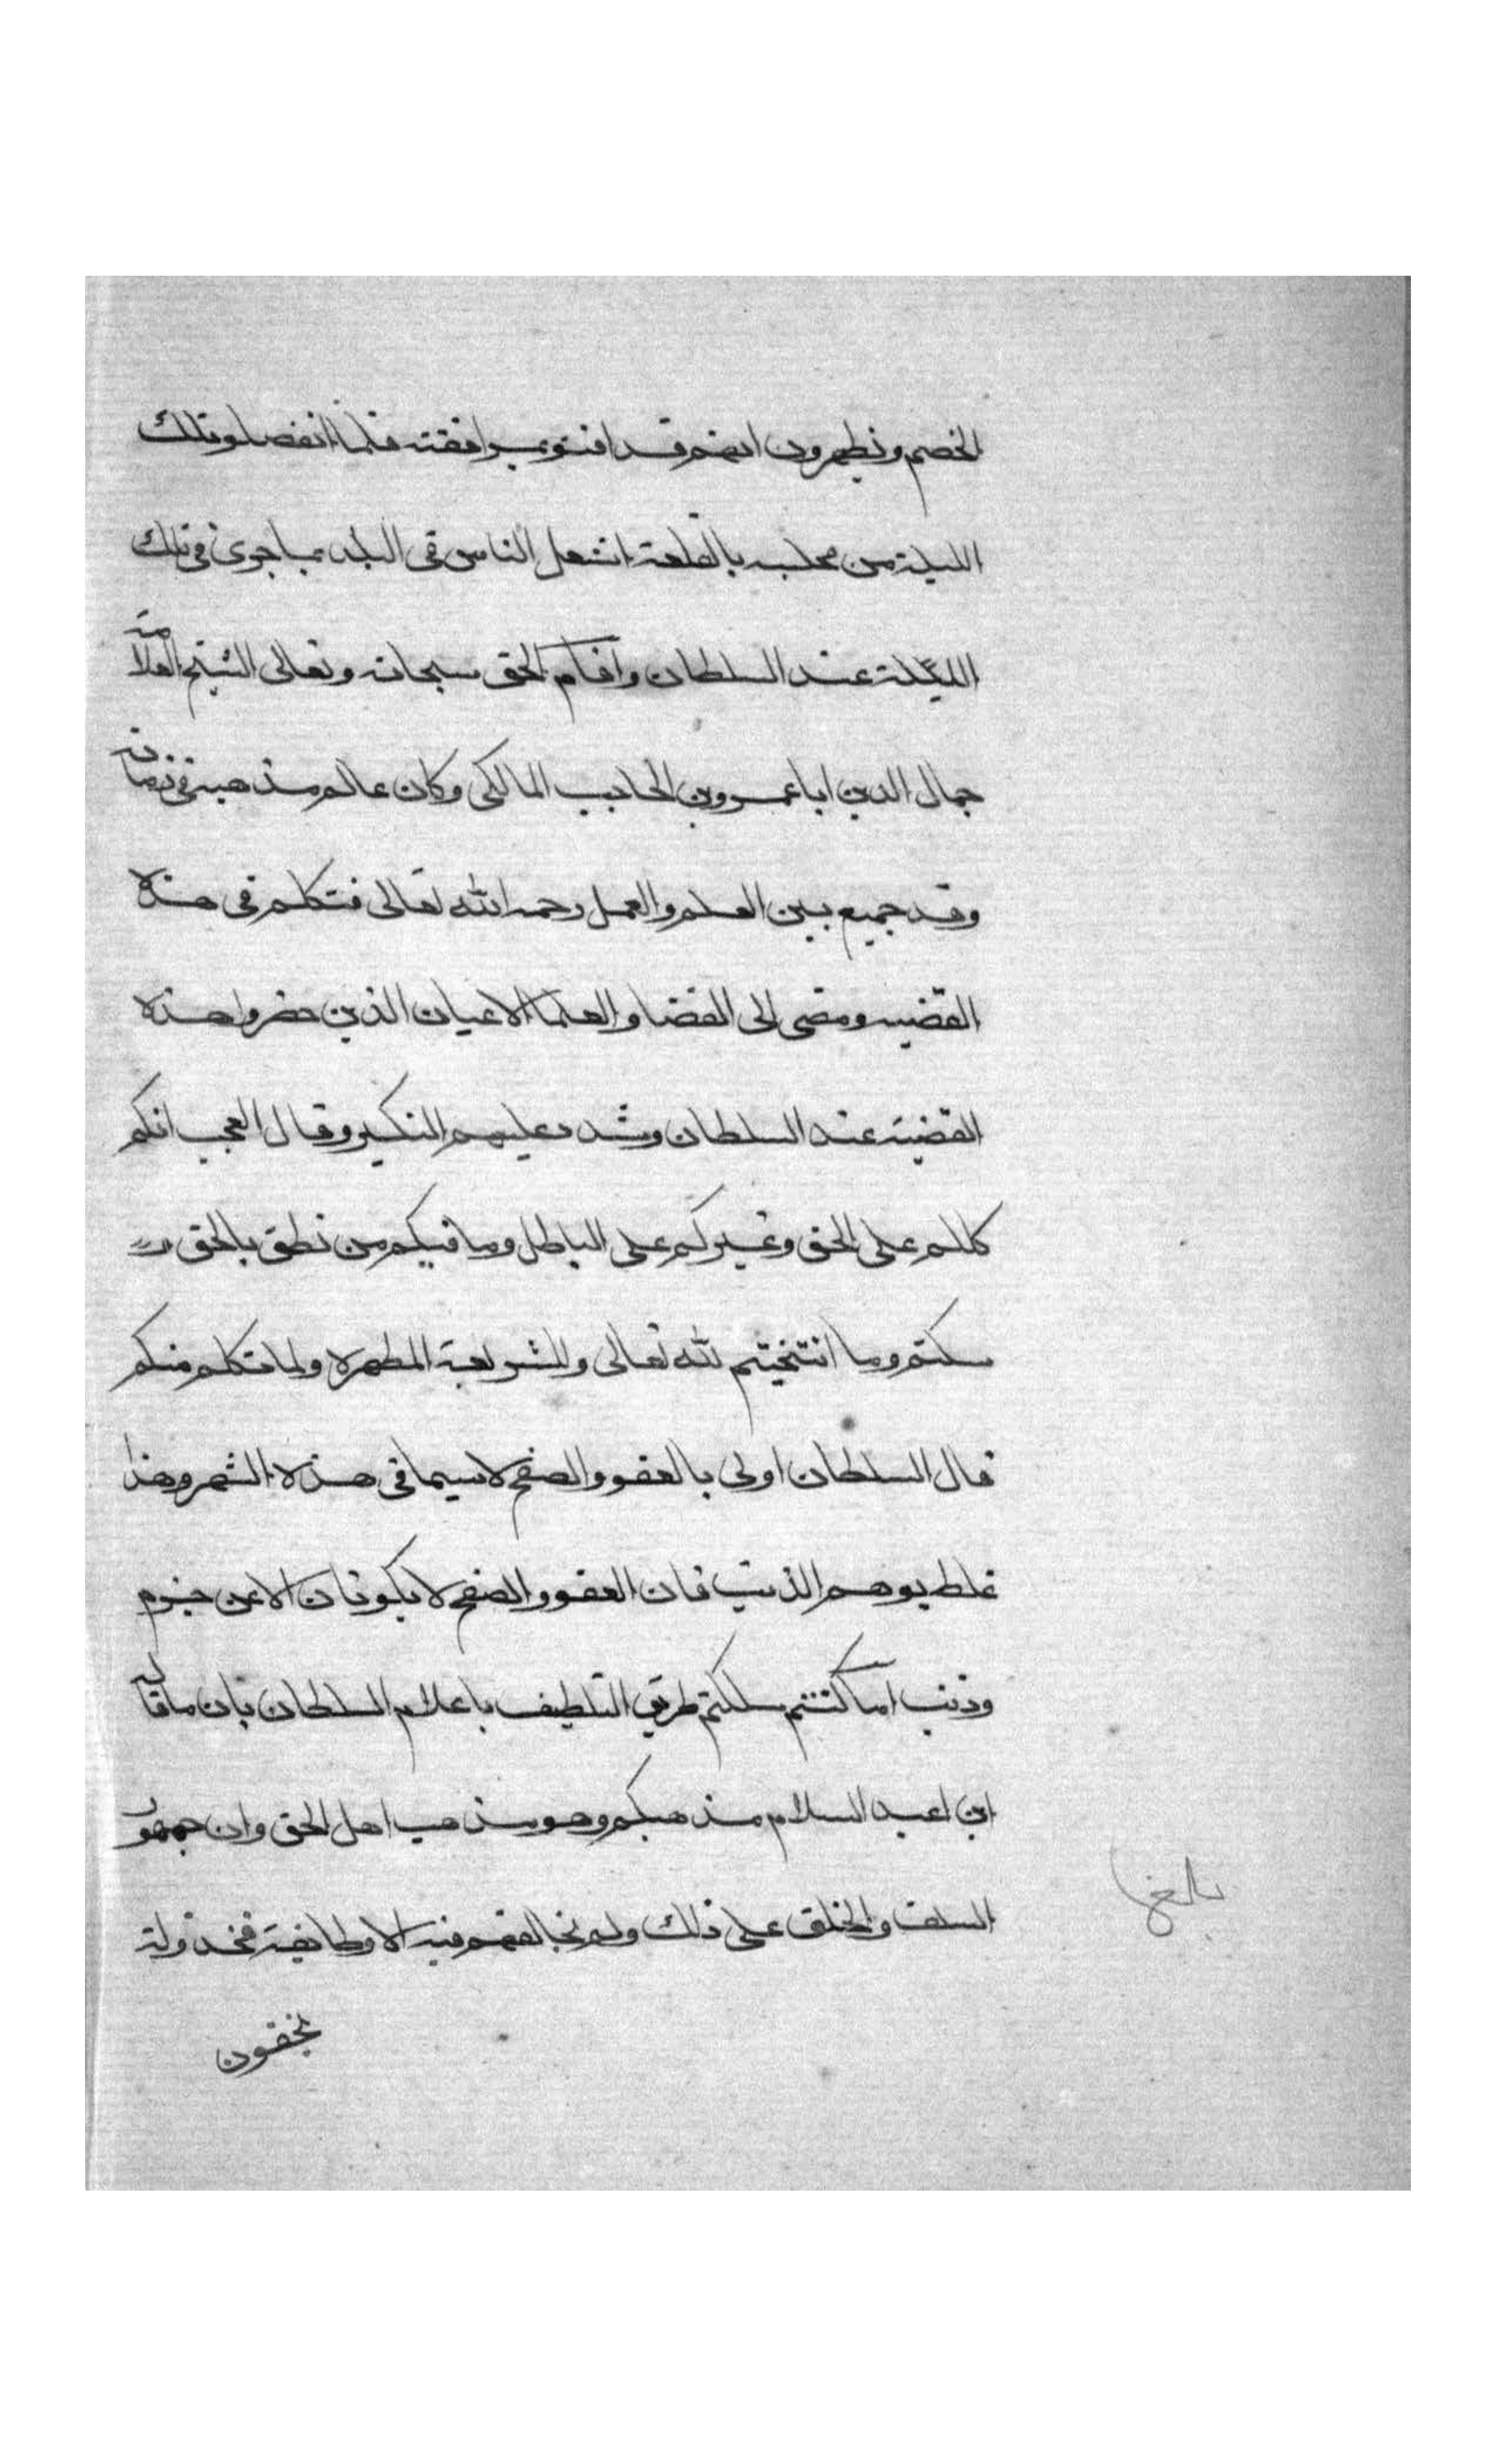 الخصم ونظهرون انهم قد افتوى بموافقته فلما انفصلو تلك
الليلة من مجلسه بالقلعة اشتعل الناس في البلد بما جرى في تلك
الليلة عند السلطان واقام الحق سبحانه وتعالى الشيخ العلامة
جمال الدين ابا عمرو بن الحاجب المالكي وكان عالم مذهبه في زمانه
وقد جميع بين العلم والعمل رحمه الله تعالى فتكلم في هذه
القضيه ومضى الى القضا والعلما الاعيان الذين حضروا هذه
القضية عند السلطان وشدد عليهم النكير وقال العجب انكم
كللم على الحق وغيركم على الباطل وما فيكم من نطق بالحق
سكتم وما انتخيتم لله تعالى وللشريعة المطهرة ولما تكلم منكم
قال السلطان اولى بالعفو والصفح لا سيما في هذه الشهر وهذا
غلط يوهم الذنب فان العفو والصفح لا يكونان الا عن جزم
وذنب اما كنتم سلكتم طريق التلطيف باعلام السلطان بان ما قاله
ابن اعبد السلام مذهبكم وهو مذهب اهل الحق وان جمهور
السلف والخلق على ذلك ولم يخالفهم فيه الا وطايفة مخذولة
يخفون
بلغ